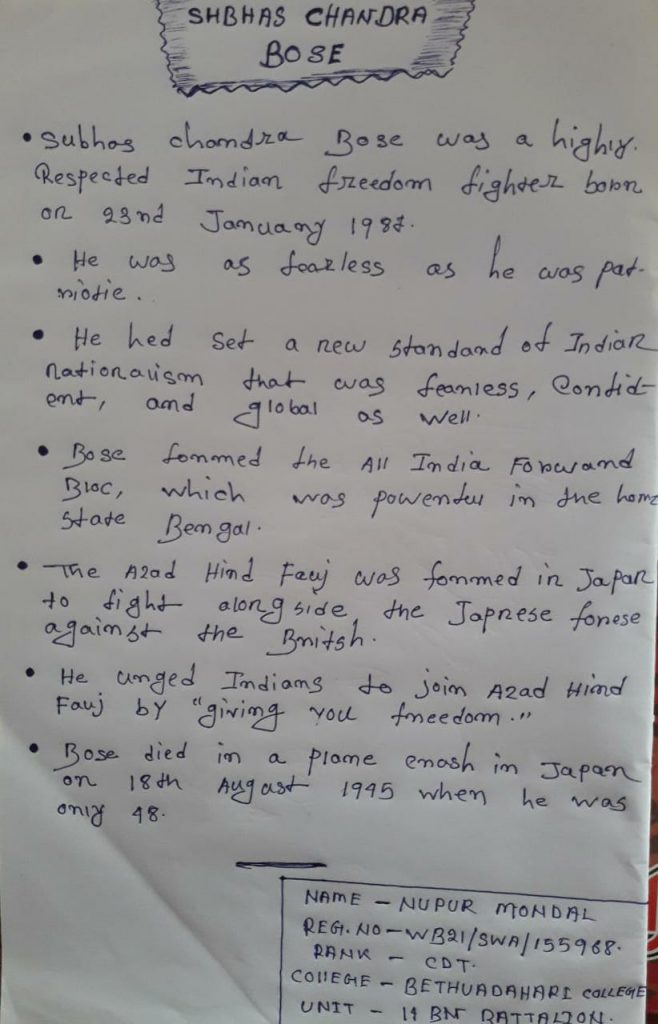 SHBHAS CHANDRA
BOSE
• Subhas chandra Bose was a highly.
Respected Indian freedom fighter born
on 23nd January 1987.
• He was as fearless as he was pat-
riotie.
• He hed set a new standard of Indian
nationalism that was fearless, Confid-
ent, and global as well.
• Bose formed the All India Forward
Bloc, which was powerful in the home
state Bengal.
• The Azad Hind Fauj was formed in Japan
to fight alongside the Japnese forese
against the Britsh.
• He urged Indians to join Azad Hind
Fauj by "giving you freedom."
• Bose died in a plane crash in Japan
on 18th August 1945 when he was
only 48.
NAME - NUPUR MONDAL
REG. NO - WB21/SWA/155968.
RANK - CDT.
COllEGE - BETHUADAHARI COLLEGE
UNIT - BN BATTALION.